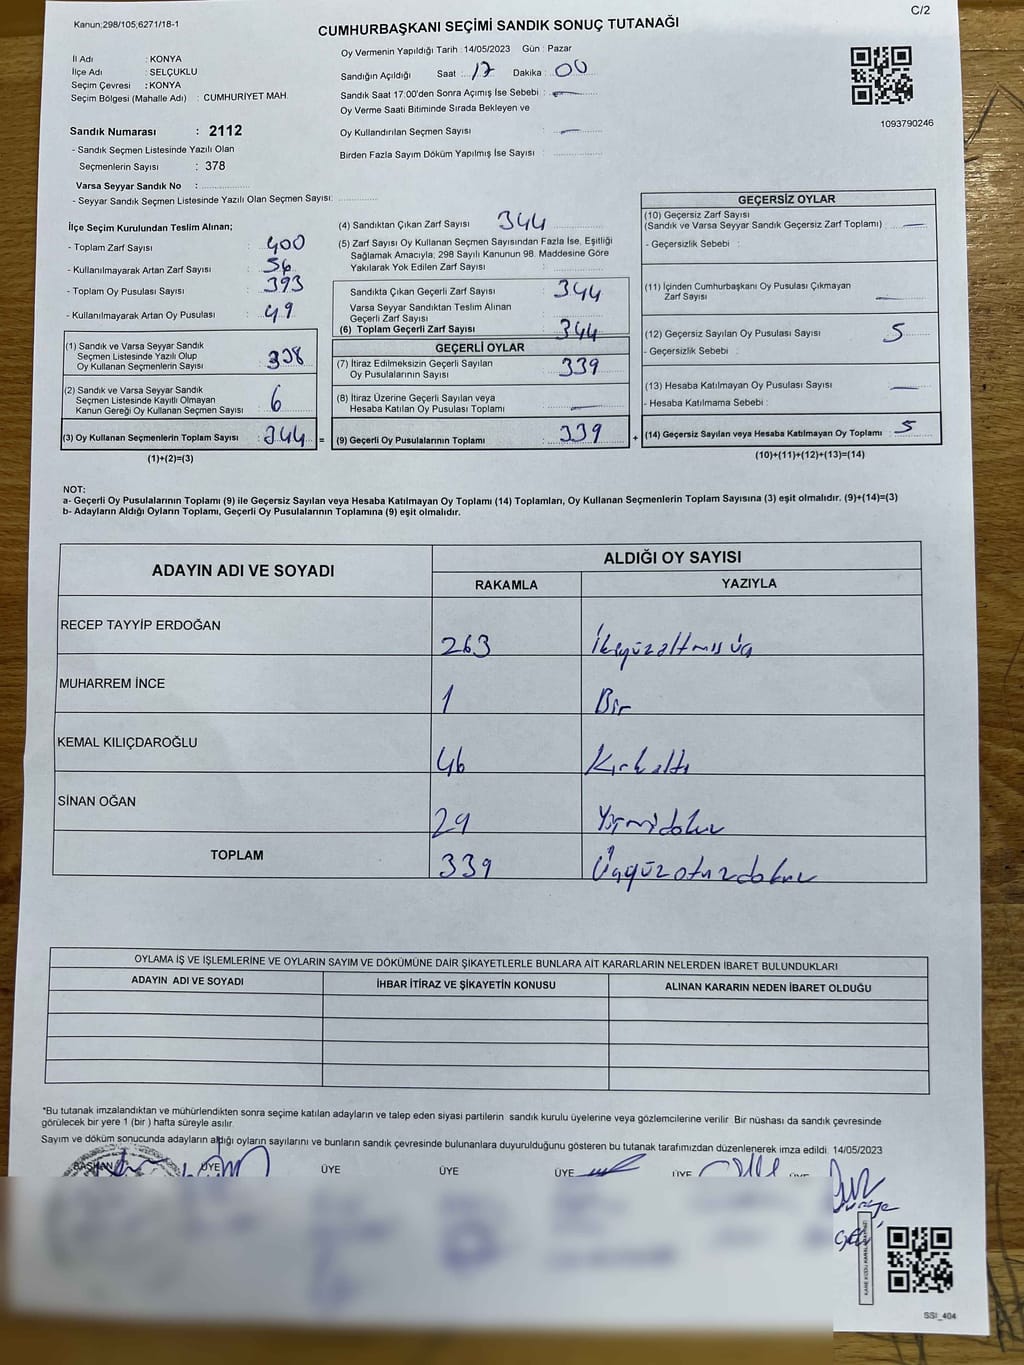 Kanun;298/105;6271/18-1
C/2
CUMHURBAŞKANI SEÇİMİ SANDIK SONUÇ TUTANAĞI
İl Adı : KONYA
İlçe Adı : SELÇUKLU
Seçim Çevresi : KONYA
Seçim Bölgesi (Mahalle Adı) : CUMHURİYET MAH.
Sandık Numarası : 2112
- Sandık Seçmen Listesinde Yazılı Olan
Seçmenlerin Sayısı : 378
Varsa Seyyar Sandık No :
- Seyyar Sandık Seçmen Listesinde Yazılı Olan Seçmen Sayısı:
Oy Vermenin Yapıldığı Tarih : 14/05/2023 Gün : Pazar
Sandığın Açıldığı Saat : 17 Dakika : 00
Sandık Saat 17:00'den Sonra Açımış İse Sebebi : —
Oy Verme Saati Bitiminde Sırada Bekleyen ve
Oy Kullandırılan Seçmen Sayısı : —
Birden Fazla Sayım Döküm Yapılmış İse Sayısı :
1093790246
İlçe Seçim Kurulundan Teslim Alınan;
- Toplam Zarf Sayısı : 400
- Kullanılmayarak Artan Zarf Sayısı : 56
- Toplam Oy Pusulası Sayısı : 393
- Kullanılmayarak Artan Oy Pusulası : 49
(1) Sandık ve Varsa Seyyar Sandık
Seçmen Listesinde Yazılı Olup
Oy Kullanan Seçmenlerin Sayısı : 338
(2) Sandık ve Varsa Seyyar Sandık
Seçmen Listesinde Kayıtlı Olmayan
Kanun Gereği Oy Kullanan Seçmen Sayısı : 6
(3) Oy Kullanan Seçmenlerin Toplam Sayısı : 344 =
(1)+(2)=(3)
(4) Sandıktan Çıkan Zarf Sayısı : 344
(5) Zarf Sayısı Oy Kullanan Seçmen Sayısından Fazla İse, Eşitliği
Sağlamak Amacıyla; 298 Sayılı Kanunun 98. Maddesine Göre
Yakılarak Yok Edilen Zarf Sayısı :
Sandıkta Çıkan Geçerli Zarf Sayısı : 344
Varsa Seyyar Sandıktan Teslim Alınan
Geçerli Zarf Sayısı :
(6) Toplam Geçerli Zarf Sayısı : 344
GEÇERLİ OYLAR
(7) İtiraz Edilmeksizin Geçerli Sayılan
Oy Pusulalarının Sayısı : 339
(8) İtiraz Üzerine Geçerli Sayılan veya
Hesaba Katılan Oy Pusulası Toplamı : —
(9) Geçerli Oy Pusulalarının Toplamı : 339 +
GEÇERSİZ OYLAR
(10) Geçersiz Zarf Sayısı
(Sandık ve Varsa Seyyar Sandık Geçersiz Zarf Toplamı) : —
- Geçersizlik Sebebi :
(11) İçinden Cumhurbaşkanı Oy Pusulası Çıkmayan
Zarf Sayısı : —
(12) Geçersiz Sayılan Oy Pusulası Sayısı : 5
- Geçersizlik Sebebi :
(13) Hesaba Katılmayan Oy Pusulası Sayısı : —
- Hesaba Katılmama Sebebi :
(14) Geçersiz Sayılan veya Hesaba Katılmayan Oy Toplamı : 5
(10)+(11)+(12)+(13)=(14)
NOT:
a- Geçerli Oy Pusulalarının Toplamı (9) ile Geçersiz Sayılan veya Hesaba Katılmayan Oy Toplamı (14) Toplamları, Oy Kullanan Seçmenlerin Toplam Sayısına (3) eşit olmalıdır. (9)+(14)=(3)
b- Adayların Aldığı Oyların Toplamı, Geçerli Oy Pusulalarının Toplamına (9) eşit olmalıdır.
ADAYIN ADI VE SOYADI
ALDIĞI OY SAYISI
RAKAMLA
YAZIYLA
RECEP TAYYİP ERDOĞAN 263 İkiyüzaltmışüç
MUHARREM İNCE 1 Bir
KEMAL KILIÇDAROĞLU 46 Kırkaltı
SİNAN OĞAN 29 Yirmidokuz
TOPLAM 339 Üçyüzotuzdokuz
OYLAMA İŞ VE İŞLEMLERİNE VE OYLARIN SAYIM VE DÖKÜMÜNE DAİR ŞİKAYETLERLE BUNLARA AİT KARARLARIN NELERDEN İBARET BULUNDUKLARI
ADAYIN ADI VE SOYADI
İHBAR İTİRAZ VE ŞİKAYETİN KONUSU
ALINAN KARARIN NEDEN İBARET OLDUĞU
*Bu tutanak imzalandıktan ve mühürlendikten sonra seçime katılan adayların ve talep eden siyasi partilerin sandık kurulu üyelerine veya gözlemcilerine verilir. Bir nüshası da sandık çevresinde
görülecek bir yere 1 (bir ) hafta süreyle asılır.
Sayım ve döküm sonucunda adayların aldığı oyların sayılarını ve bunların sandık çevresinde bulunanlara duyurulduğunu gösteren bu tutanak tarafımızdan düzenlenerek imza edildi. 14/05/2023
BAŞKAN ÜYE ÜYE ÜYE ÜYE ÜYE
SSI_404